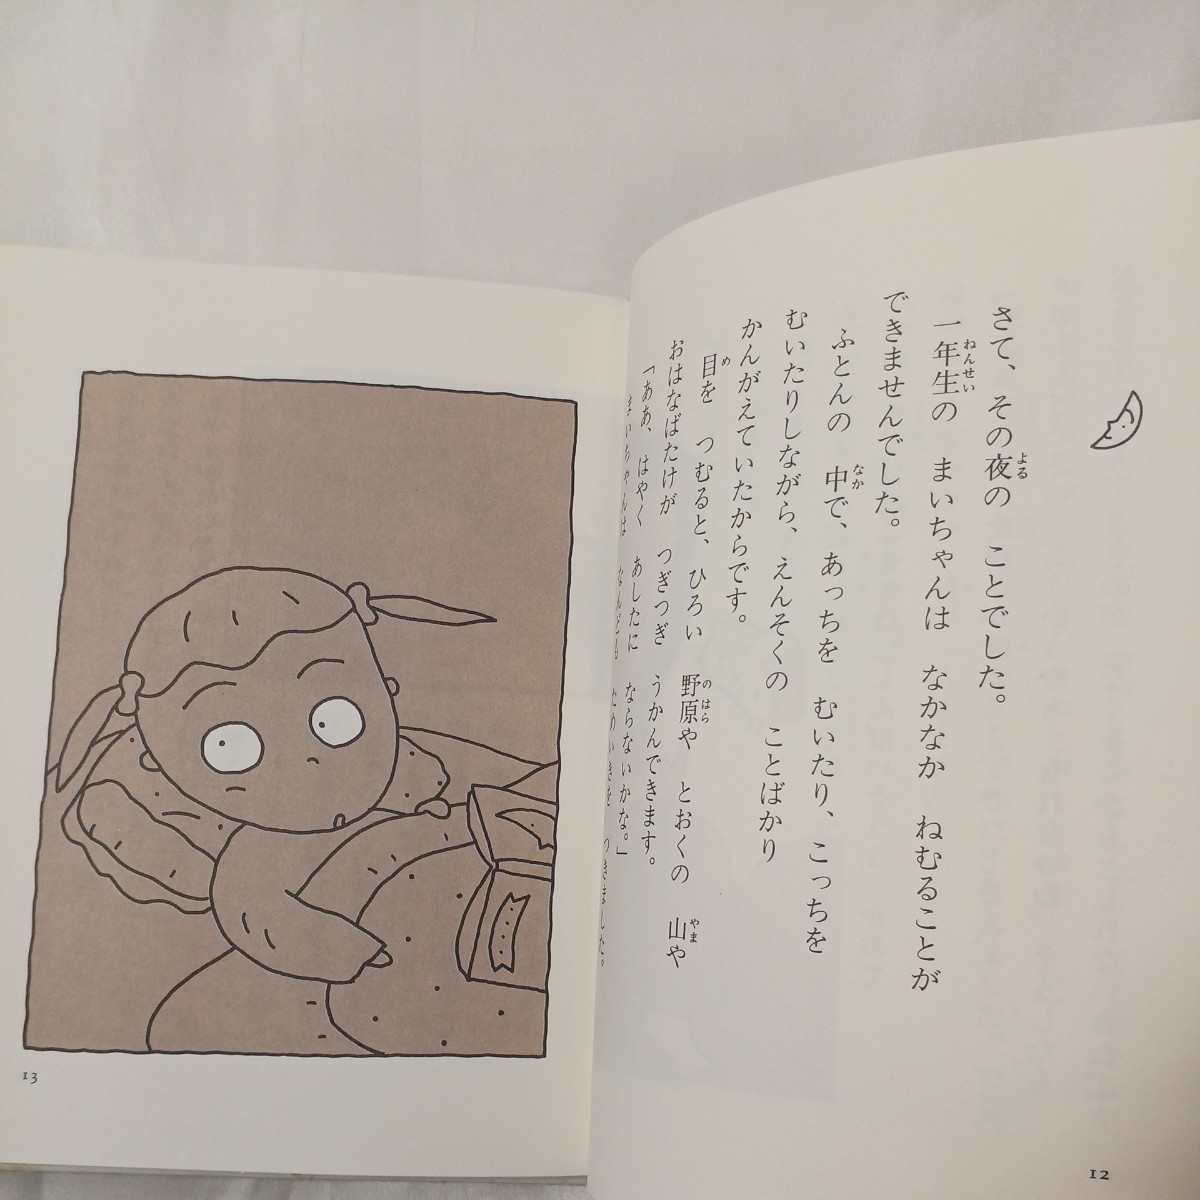 さて、その夜の　ことでした。
一年生の　まいちゃんは　なかなか　ねむることが
できませんでした。
ふとんの　中で、あっちを　むいたり、こっちを
むいたりしながら、えんそくの　ことばかり
かんがえていたからです。
目を　つむると、ひろい　野原や　とおくの　山や
おはなばたけが　つぎつぎ　うかんできます。
「ああ、はやく　あしたに　ならないかな。」
まいちゃんは　なんども　ためいきを　つきました。
12
13